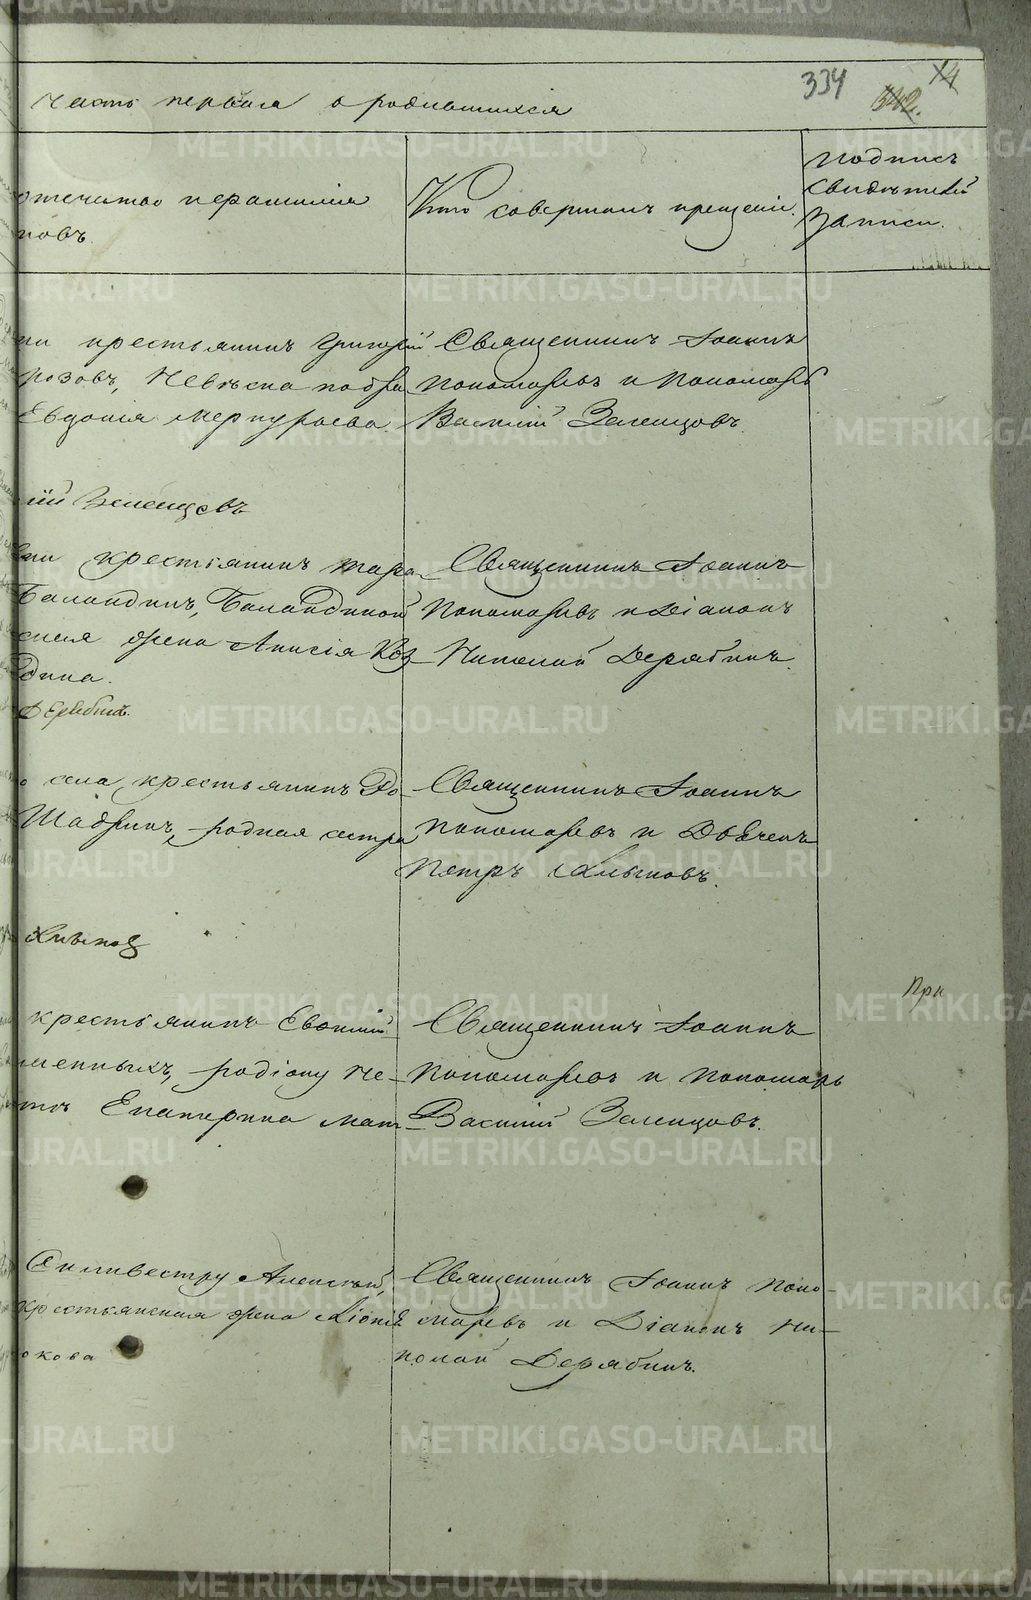 334
342.
14
Часть первая о родившихся
отечество и фамилія
повъ.
Кто совершалъ крещеніе.
Подпись
свидѣтелей
записи.
ли крестьянинъ Григорій
розовъ, Невѣста
Евдокія Меркурьева.
Священникъ Іоаннъ
Пономаревъ и Пономарь
Василій Зеленцовъ.
лій Зеленцовъ
ли крестьянинъ Тара
Баландинъ, Баландиной
жена Анисія Коз
дина.
Дерябинъ.
Священникъ Іоаннъ
Пономаревъ и Діаконъ
Николай Дерябинъ.
о села крестьянинъ Ро
Шадринъ, родная сестра
Священникъ Іоаннъ
Пономаревъ и Дьячекъ
Петръ Хлыновъ.
Хлыновъ
При
крестьянинъ Евѳимій
менныхъ, родіону Не
Екатерина Мат
Священникъ Іоаннъ
Пономаревъ и Пономарь
Василій Зеленцовъ.
Силивестру Алексѣй,
крестьянская жена
окова
Священникъ Іоаннъ Поно-
маревъ и Діаконъ Ни-
колай Дерябинъ.
METRIKI.GASO-URAL.RU